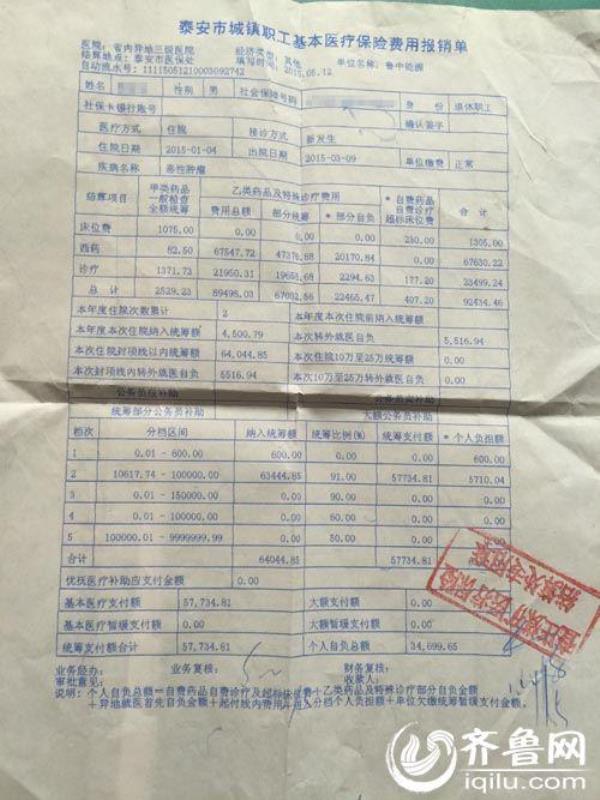 泰安市城镇职工基本医疗保险费用报销单
医院：省内异地三级医院 经济类型：其他
结算地点：泰安市医保处 填写时间：2015.05.12 单位名称：鲁中能源
自动流水号：1115051210003092742
姓名 性别 男 社会保障号码 身份 退休职工
社保卡银行账号 确认签字
医疗方式 住院 接诊方式 新发生
住院日期 2015-01-04 出院日期 2015-03-09 单位缴费 正常
疾病名称 恶性肿瘤
结算项目 甲类药品一般检查全额统筹 乙类药品及特殊诊疗费用 *自费药品自费诊疗超标床位费 合计
费用总额 部分统筹 *部分自负
床位费 1075.00 0.00 0.00 0.00 230.00 1305.00
西药 82.50 67547.72 47376.88 20170.84 0.00 67630.22
诊疗 1371.73 21950.31 19655.68 2294.63 177.20 23499.24
总计 2529.23 89498.03 67032.56 22465.47 407.20 92434.46
本年度住院次数累计 2 本年度本次住院前纳入统筹额
本年度本次住院纳入统筹额 4,500.79 本次转外就医自负 5,516.94
本次住院封顶线以内统筹额 64,044.85 本次住院10万至25万统筹额 0.00
本次封顶线内转外就医自负 5516.94 本次10万至25万转外就医自负 0.00
公务员级补助
统筹部分公务员补助 大额公务员补助
档次 分档区间 纳入统筹额 统筹比例(%) 统筹支付额 *个人负担额
1 0.01 - 600.00 600.00 0.00 600.00
2 10617.74 - 100000.00 63444.85 91.00 57734.81 5710.04
3 0.01 - 150000.00 0.00 90.00 0.00
4 0.01 - 100000.00 0.00 60.00 0.00
5 100000.01 - 9999999.99 0.00 50.00 0.00
合计 64044.85 57734.81
优抚医疗补助应支付金额 0.00
基本医疗支付额 57,734.81 大额支付额 0.00
基本医疗暂缓支付额 0.00 大额暂缓支付额 0.00
统筹支付额合计 57,734.81 个人自负总额 34,699.65
业务经办： 业务复核： 财务复核：
审批意见： 收款人：
说明：个人自负总额＝自费药品自费诊疗及超标床位费＋乙类药品及特殊诊疗部分自负金额
＋异地就医首先自负金额＋起付线内费用＋纳入分档个人负担额＋单位欠缴统筹暂缓支付金额。
齐鲁网
iqilu.com